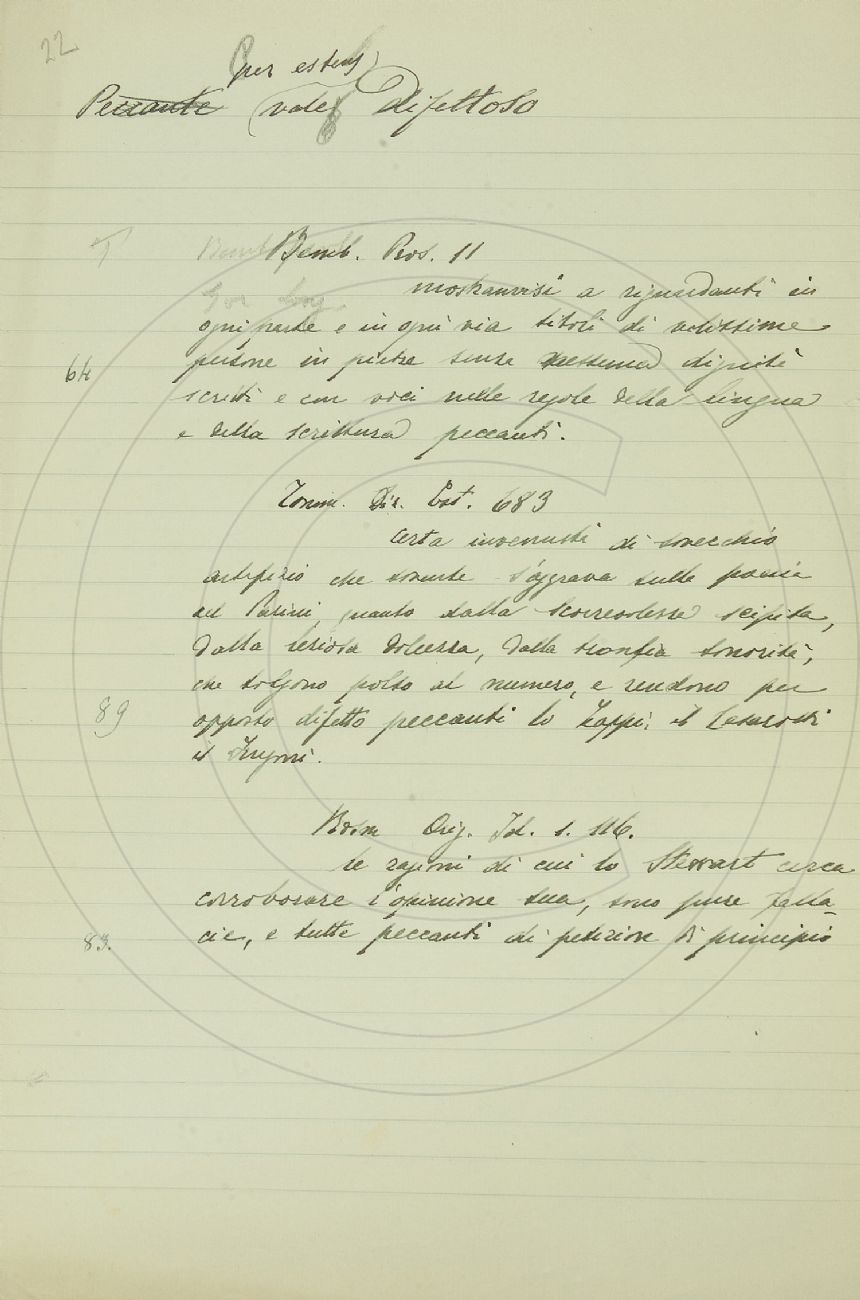 22
per estens
Peccante vale Difettoso
T Bemb. Pros. 11
mostranvisi a riguardanti in
ogni parte e in ogni via titoli di vilissime
64 persone in pietre senza nessuna dignità
scritti e con voci nelle regole della lingua
e della scrittura peccanti.
Tomm. Diz. Est. 683
certa invenustà di soverchio
artifizio che sovente s'aggrava sulle poesie
del Parini, quanto dalla scorrevolezza scipita,
dalla leziosa dolcezza, dalla tronfia sonorità,
che tolgono polso al numero, e rendono per
89 opposto difetto peccanti lo Zappi, il Cesarotti
il Frugoni.
Rosm Orig. Id. 1. 116.
le ragioni di cui lo Stewart cerca
corroborare l'opinione sua, sono pure falla-
83. cie, e tutte peccanti di petizion di principio